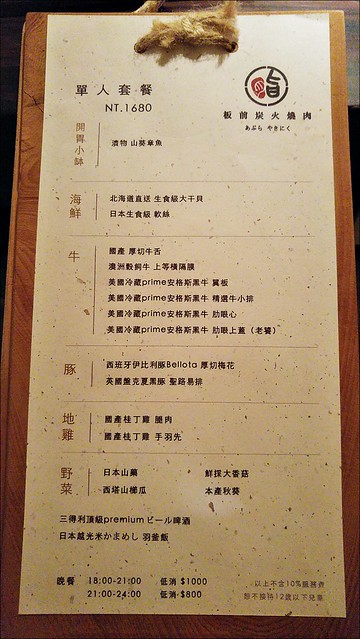 單人套餐
NT.1680
旨
板前炭火燒肉
あぶら やきにく
開胃小缽
漬物 山葵章魚
海鮮
北海道直送 生食級大干貝
日本生食級 軟絲
牛
國產 厚切牛舌
澳洲穀飼牛 上等橫隔膜
美國冷藏prime安格斯黑牛 翼板
美國冷藏prime安格斯黑牛 精選牛小排
美國冷藏prime安格斯黑牛 肋眼心
美國冷藏prime安格斯黑牛 肋眼上蓋（老饕）
豚
西班牙伊比利豚Bellota 厚切梅花
英國盤克夏黑豚 聖路易排
地雞
國產桂丁雞 腿肉
國產桂丁雞 手羽先
野菜
日本山藥 鮮採大香菇
西塔山櫛瓜 本產秋葵
三得利頂級premiumビール啤酒
日本越光米かまめし 羽釜飯
晚餐 18:00-21:00 低消 $1000
21:00-24:00 低消 $800
以上不含10%服務費
恕不接待12歲以下兒童